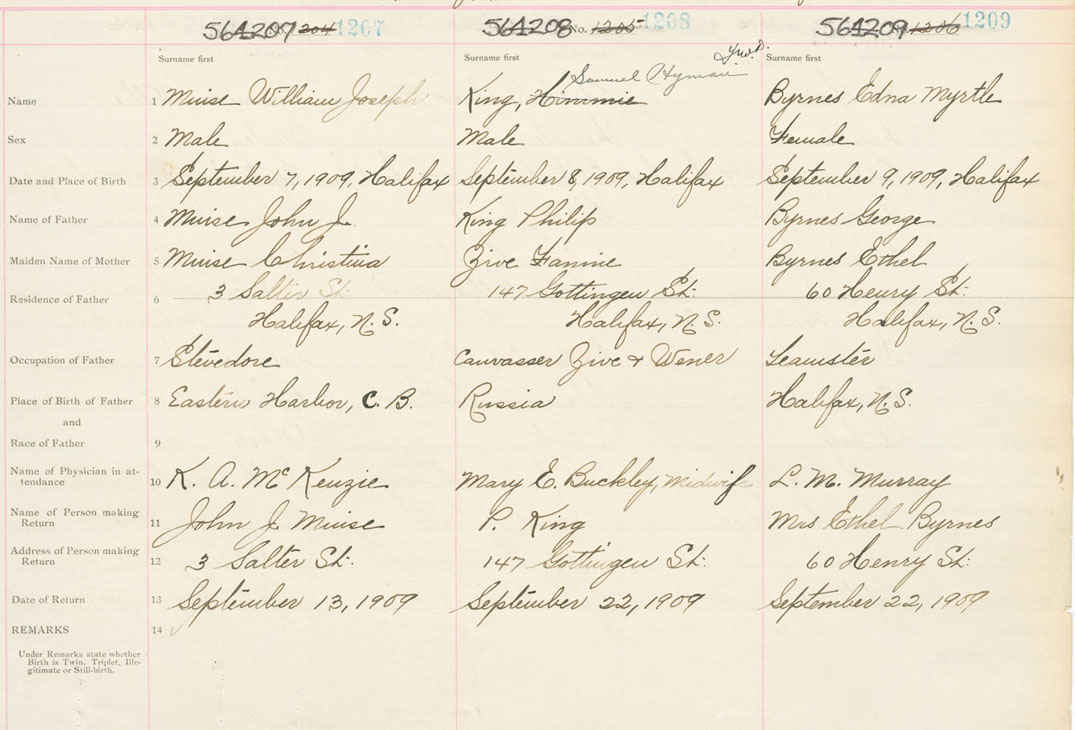 564207 204 1207 564208 No. 1205 1208 564209 1206 1209
Surname first Surname first Surname first
Samuel Hyman
Name 1 Muise William Joseph King, Himmie Byrnes Edna Myrtle
Sex 2 Male Male Female
Date and Place of Birth 3 September 7, 1909, Halifax September 8, 1909, Halifax September 9, 1909, Halifax
Name of Father 4 Muise John J. King Philip Byrnes George
Maiden Name of Mother 5 Muise Christina Zive Fannie Byrnes Ethel
Residence of Father 6 3 Salter St. 147 Gottingen St. 60 Henry St.
Halifax, N.S. Halifax, N.S. Halifax, N.S.
Occupation of Father 7 Stevedore Canvasser Zive & Wener Teamster
Place of Birth of Father 8 Eastern Harbor, C.B. Russia Halifax, N.S.
and
Race of Father 9
Name of Physician in at-
tendance 10 K. A. McKenzie Mary E. Buckley, Midwife L. M. Murray
Name of Person making
Return 11 John J. Muise P. King Mrs Ethel Byrnes
Address of Person making
Return 12 3 Salter St. 147 Gottingen St. 60 Henry St.
Date of Return 13 September 13, 1909 September 22, 1909 September 22, 1909
REMARKS 14
Under Remarks state whether
Birth is Twin. Triplet, Ille-
gitimate or Still-birth.